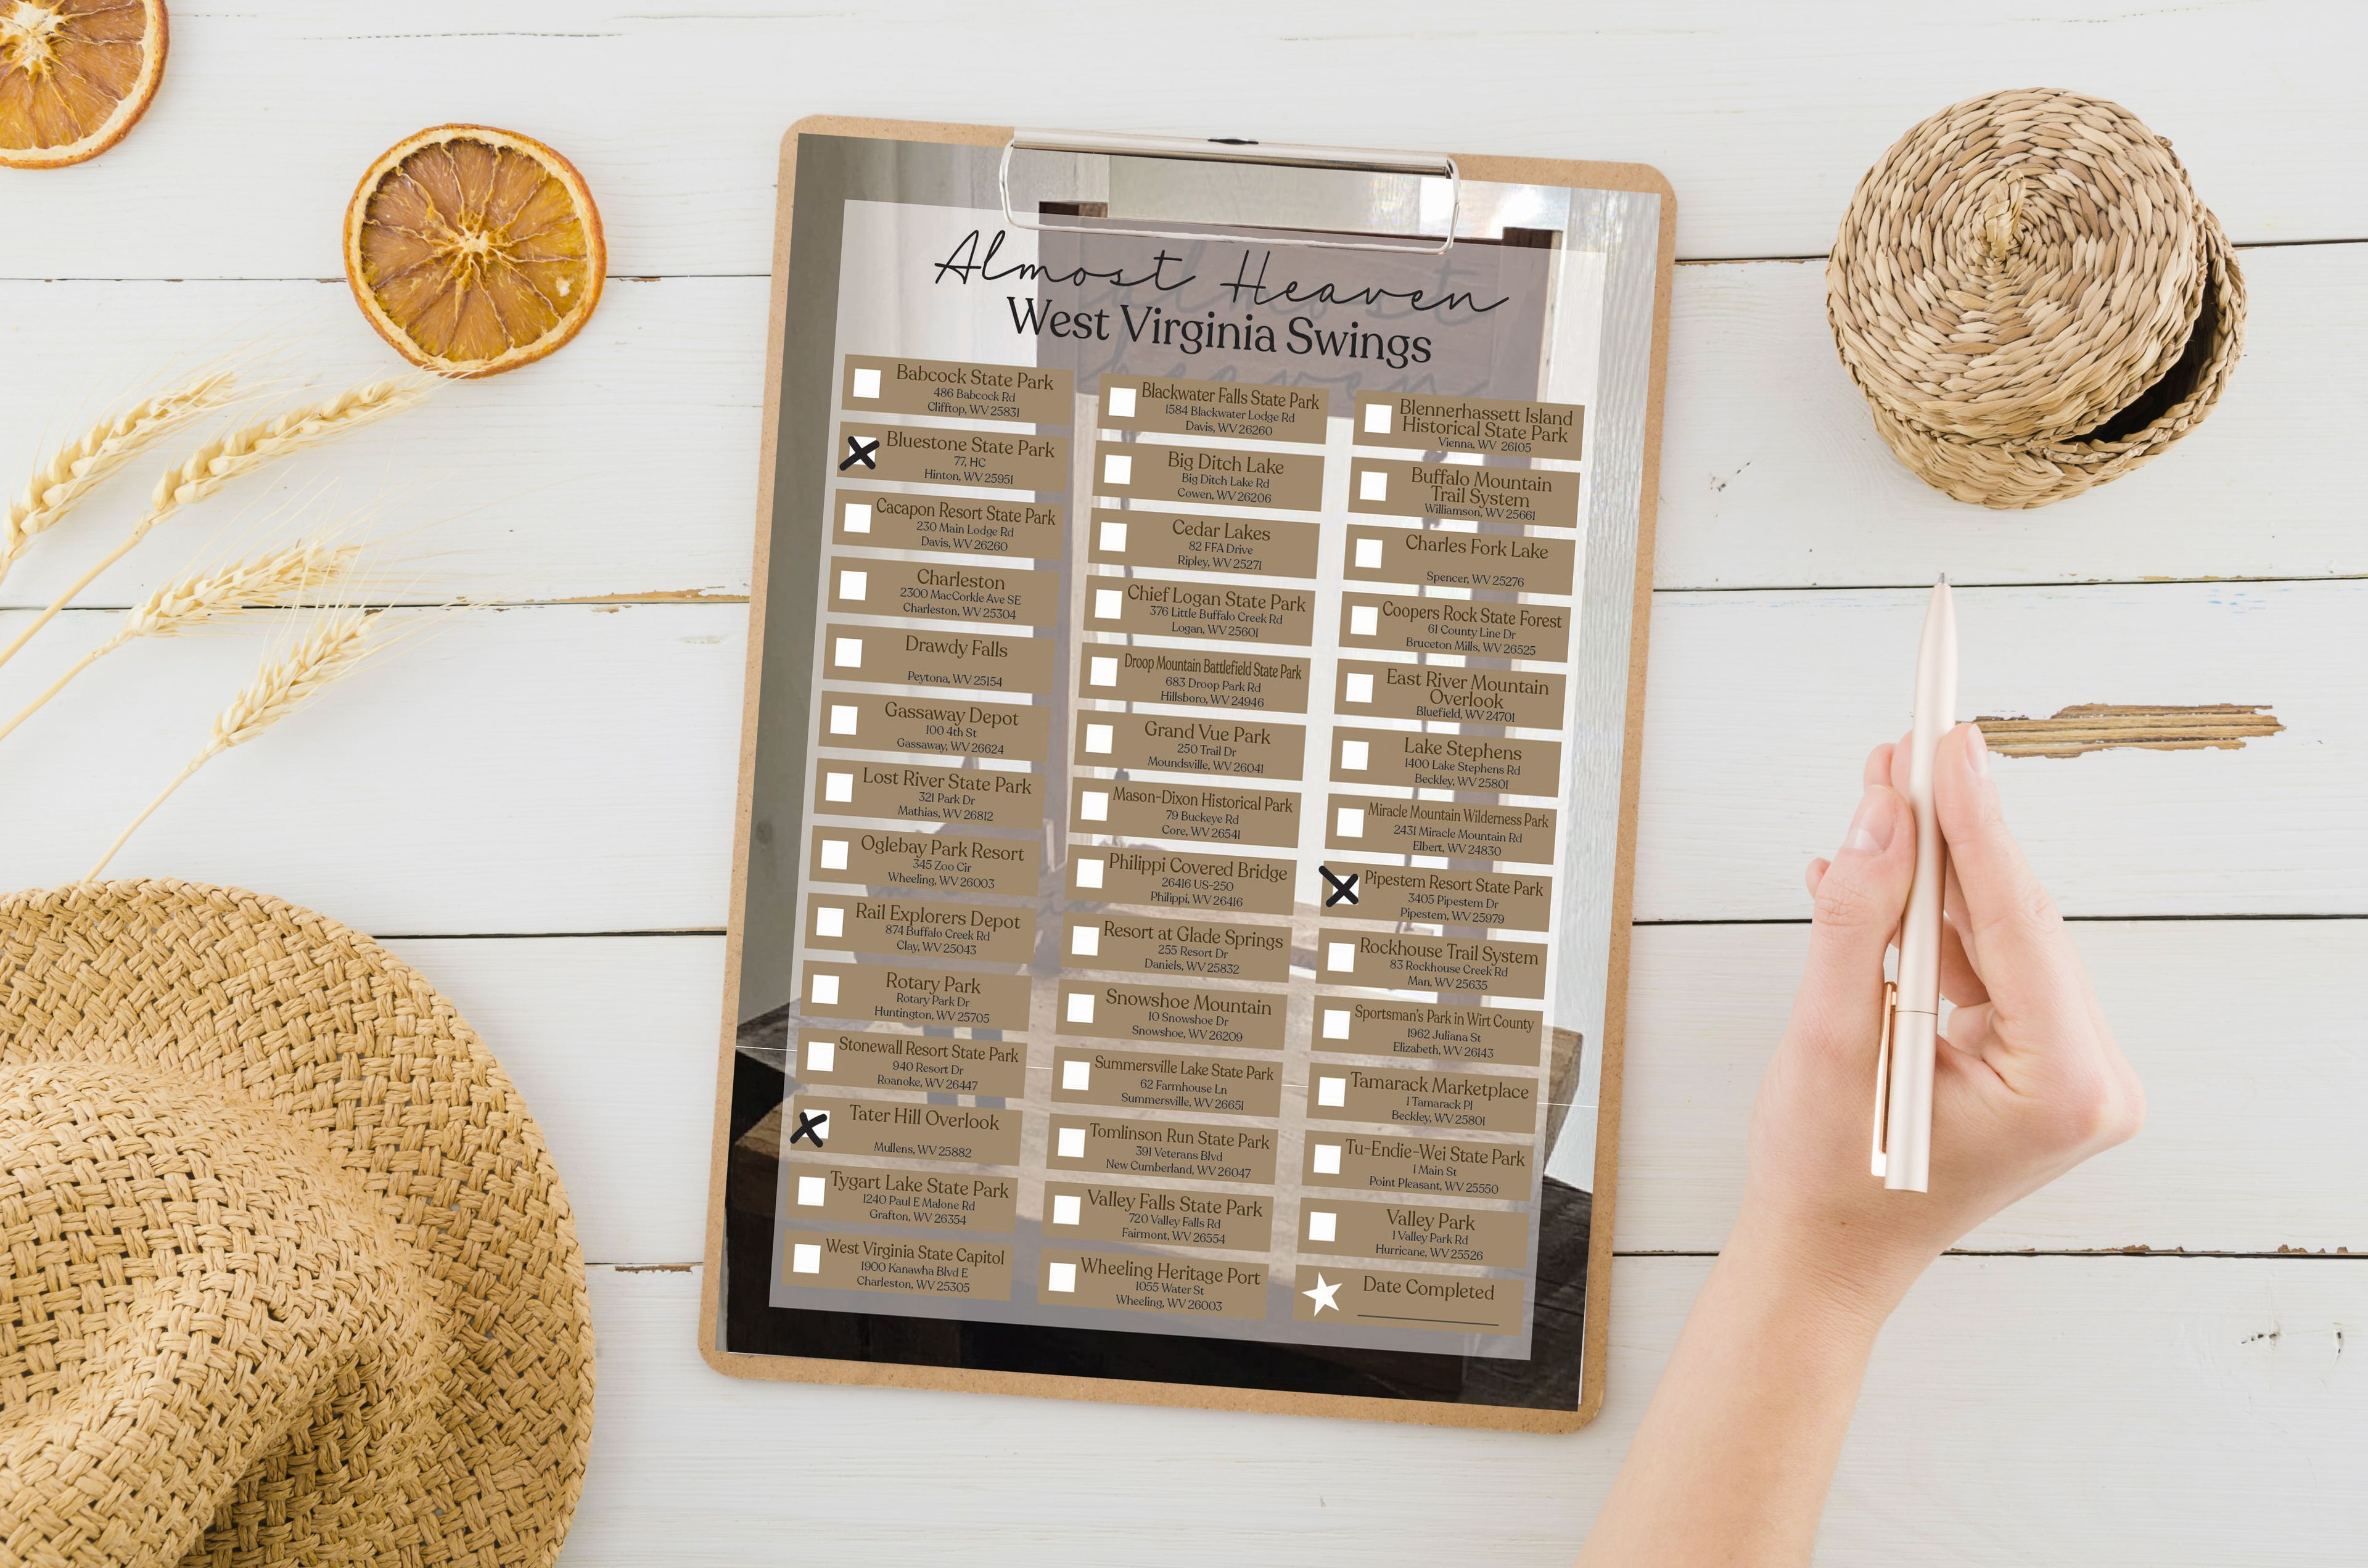 Almost Heaven
West Virginia Swings
Babcock State Park
486 Babcock Rd
Clifftop, WV 25831
Blackwater Falls State Park
1584 Blackwater Lodge Rd
Davis, WV 26260
Blennerhassett Island
Historical State Park
Vienna, WV 26105
Bluestone State Park
77, HC
Hinton, WV 25951
Big Ditch Lake
Big Ditch Lake Rd
Cowen, WV 26206
Buffalo Mountain
Trail System
Williamson, WV 25661
Cacapon Resort State Park
230 Main Lodge Rd
Davis, WV 26260
Cedar Lakes
82 FFA Drive
Ripley, WV 25271
Charles Fork Lake
Spencer, WV 25276
Charleston
2300 MacCorkle Ave SE
Charleston, WV 25304
Chief Logan State Park
376 Little Buffalo Creek Rd
Logan, WV 25601
Coopers Rock State Forest
61 County Line Dr
Bruceton Mills, WV 26525
Drawdy Falls
Peytona, WV 25154
Droop Mountain Battlefield State Park
683 Droop Park Rd
Hillsboro, WV 24946
East River Mountain
Overlook
Bluefield, WV 24701
Gassaway Depot
100 4th St
Gassaway, WV 26624
Grand Vue Park
250 Trail Dr
Moundsville, WV 26041
Lake Stephens
1400 Lake Stephens Rd
Beckley, WV 25801
Lost River State Park
321 Park Dr
Mathias, WV 26812
Mason-Dixon Historical Park
79 Buckeye Rd
Core, WV 26541
Miracle Mountain Wilderness Park
2431 Miracle Mountain Rd
Elbert, WV 24830
Oglebay Park Resort
345 Zoo Cir
Wheeling, WV 26003
Philippi Covered Bridge
26416 US-250
Philippi, WV 26416
Pipestem Resort State Park
3405 Pipestem Dr
Pipestem, WV 25979
Rail Explorers Depot
874 Buffalo Creek Rd
Clay, WV 25043
Resort at Glade Springs
255 Resort Dr
Daniels, WV 25832
Rockhouse Trail System
83 Rockhouse Creek Rd
Man, WV 25635
Rotary Park
Rotary Park Dr
Huntington, WV 25705
Snowshoe Mountain
10 Snowshoe Dr
Snowshoe, WV 26209
Sportsman's Park in Wirt County
1962 Juliana St
Elizabeth, WV 26143
Stonewall Resort State Park
940 Resort Dr
Roanoke, WV 26447
Summersville Lake State Park
62 Farmhouse Ln
Summersville, WV 26651
Tamarack Marketplace
1 Tamarack Pl
Beckley, WV 25801
Tater Hill Overlook
Mullens, WV 25882
Tomlinson Run State Park
391 Veterans Blvd
New Cumberland, WV 26047
Tu-Endie-Wei State Park
1 Main St
Point Pleasant, WV 25550
Tygart Lake State Park
1240 Paul E Malone Rd
Grafton, WV 26354
Valley Falls State Park
720 Valley Falls Rd
Fairmont, WV 26554
Valley Park
1 Valley Park Rd
Hurricane, WV 25526
West Virginia State Capitol
1900 Kanawha Blvd E
Charleston, WV 25305
Wheeling Heritage Port
1055 Water St
Wheeling, WV 26003
Date Completed